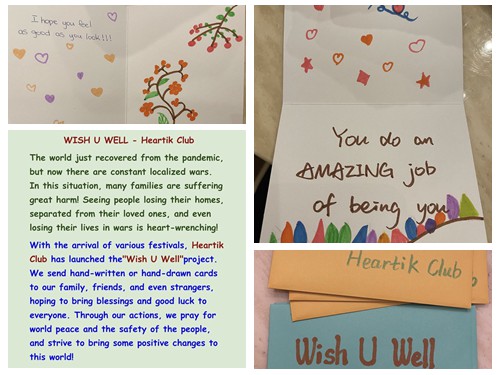 I hope you feel
as good as you look!!!
WISH U WELL - Heartik Club
The world just recovered from the pandemic,
but now there are constant localized wars.
In this situation, many families are suffering
great harm! Seeing people losing their homes,
separated from their loved ones, and even
losing their lives in wars is heart-wrenching!
With the arrival of various festivals, Heartik
Club has launched the"Wish U Well"project.
We send hand-written or hand-drawn cards
to our family, friends, and even strangers,
hoping to bring blessings and good luck to
everyone. Through our actions, we pray for
world peace and the safety of the people,
and strive to bring some positive changes to
this world!
You do an
AMAZING job
of being you
Heartik Club
Wish U Well